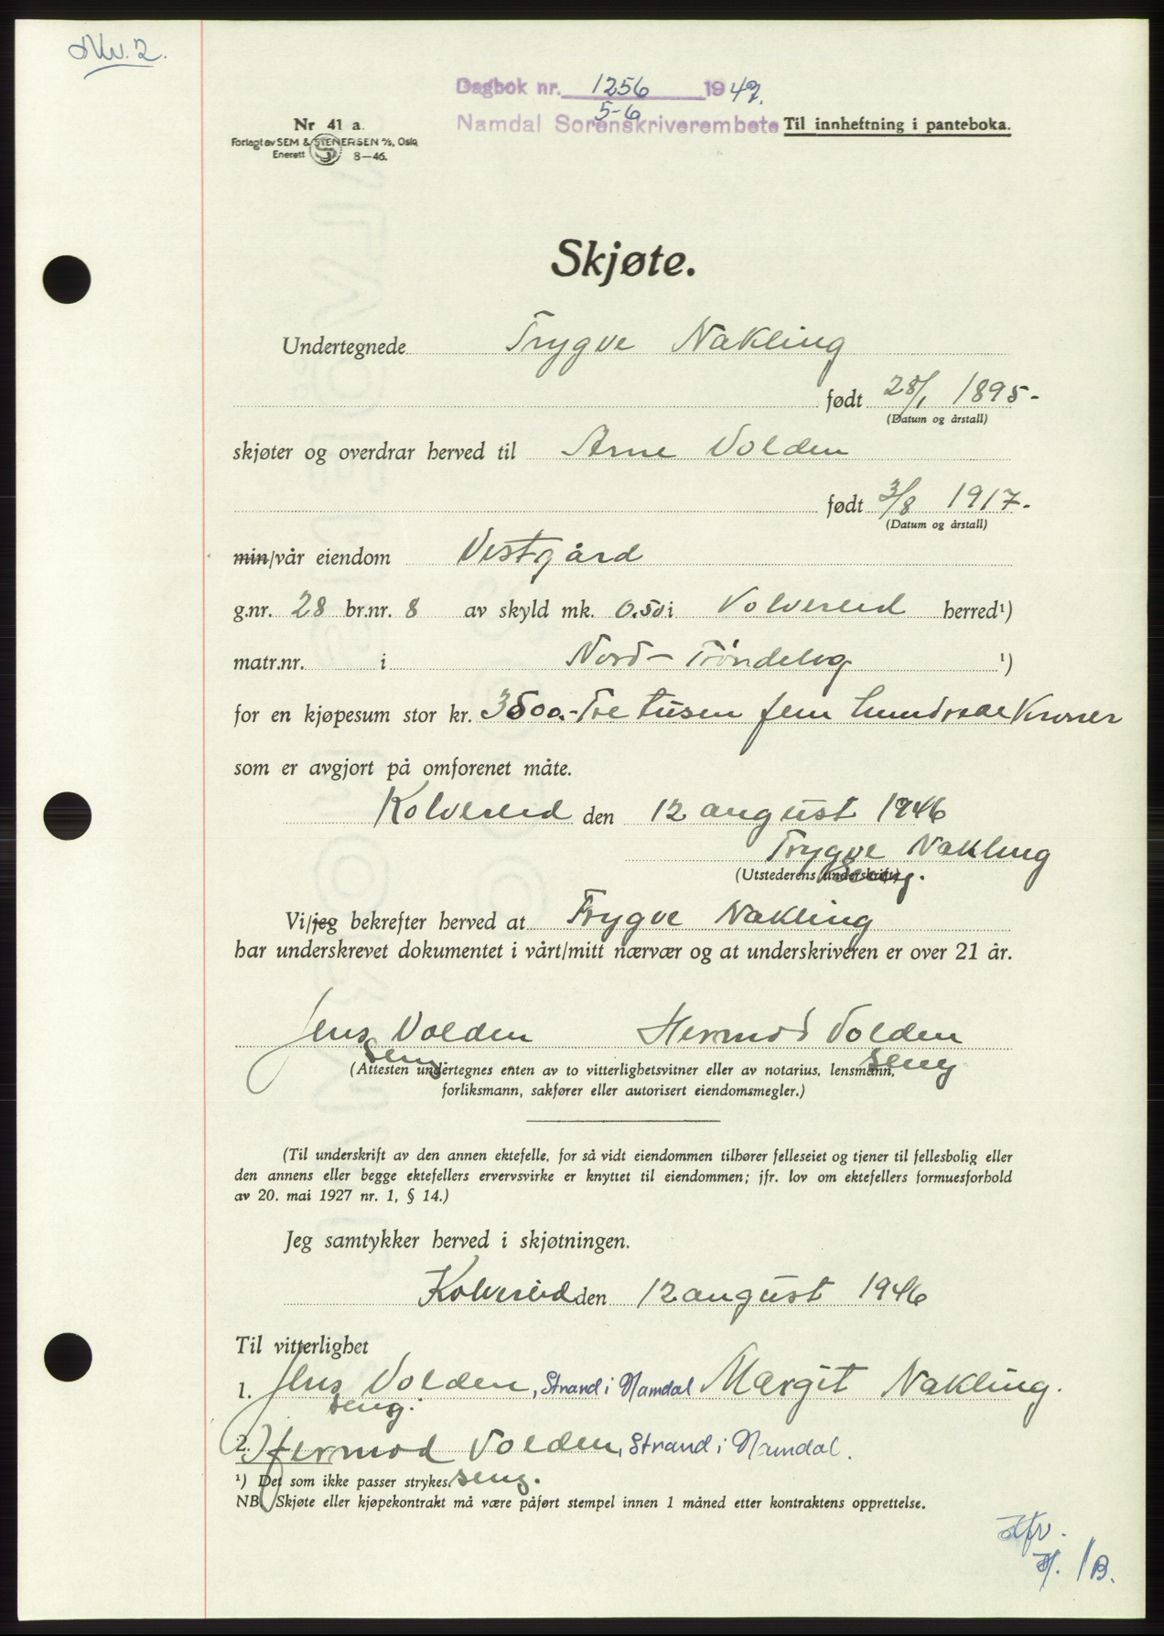 Dagbok nr. 1256 1947.
5-6
Namdal Sorenskriverembete Til innheftning i panteboka.
Nr 41 a.
Forlagt av SEM & STENERSEN A/S, Oslo
Enerett 8—46.
Skjøte.
Undertegnede Trygve Nakling
født 28/1 1895-
(Datum og årstall)
skjøter og overdrar herved til Arne Volden
født 3/8 1917-
(Datum og årstall)
min/vår eiendom Vestgård
g.nr. 28 br.nr. 8 av skyld mk. 0.50 i Kolvereid herred¹)
matr.nr. i Nord-Trøndelag ¹)
for en kjøpesum stor kr. 3500.- Tre tusen fem hundrede Kroner
som er avgjort på omforenet måte.
Kolvereid den 12 august 1946
Trygve Nakling
(Utstederens underskrift)
Vi/jeg bekrefter herved at Trygve Nakling
har underskrevet dokumentet i vårt/mitt nærvær og at underskriveren er over 21 år.
Jens Volden Hermod Volden
seng seng
(Attesten undertegnes enten av to vitterlighetsvitner eller av notarius, lensmann,
forliksmann, sakfører eller autorisert eiendomsmegler.)
(Til underskrift av den annen ektefelle, for så vidt eiendommen tilhører felleseiet og tjener til fellesbolig eller
den annens eller begge ektefellers ervervsvirke er knyttet til eiendommen; jfr. lov om ektefellers formuesforhold
av 20. mai 1927 nr. 1, § 14.)
Jeg samtykker herved i skjøtningen.
Kolvereid den 12 august 1946
Til vitterlighet
1. Jens Volden, Strand i Namdal Margit Nakling.
seng.
2. Hermod Volden, Strand i Namdal.
seng.
¹) Det som ikke passer strykes.
NB. Skjøte eller kjøpekontrakt må være påført stempel innen 1 måned etter kontraktens opprettelse.